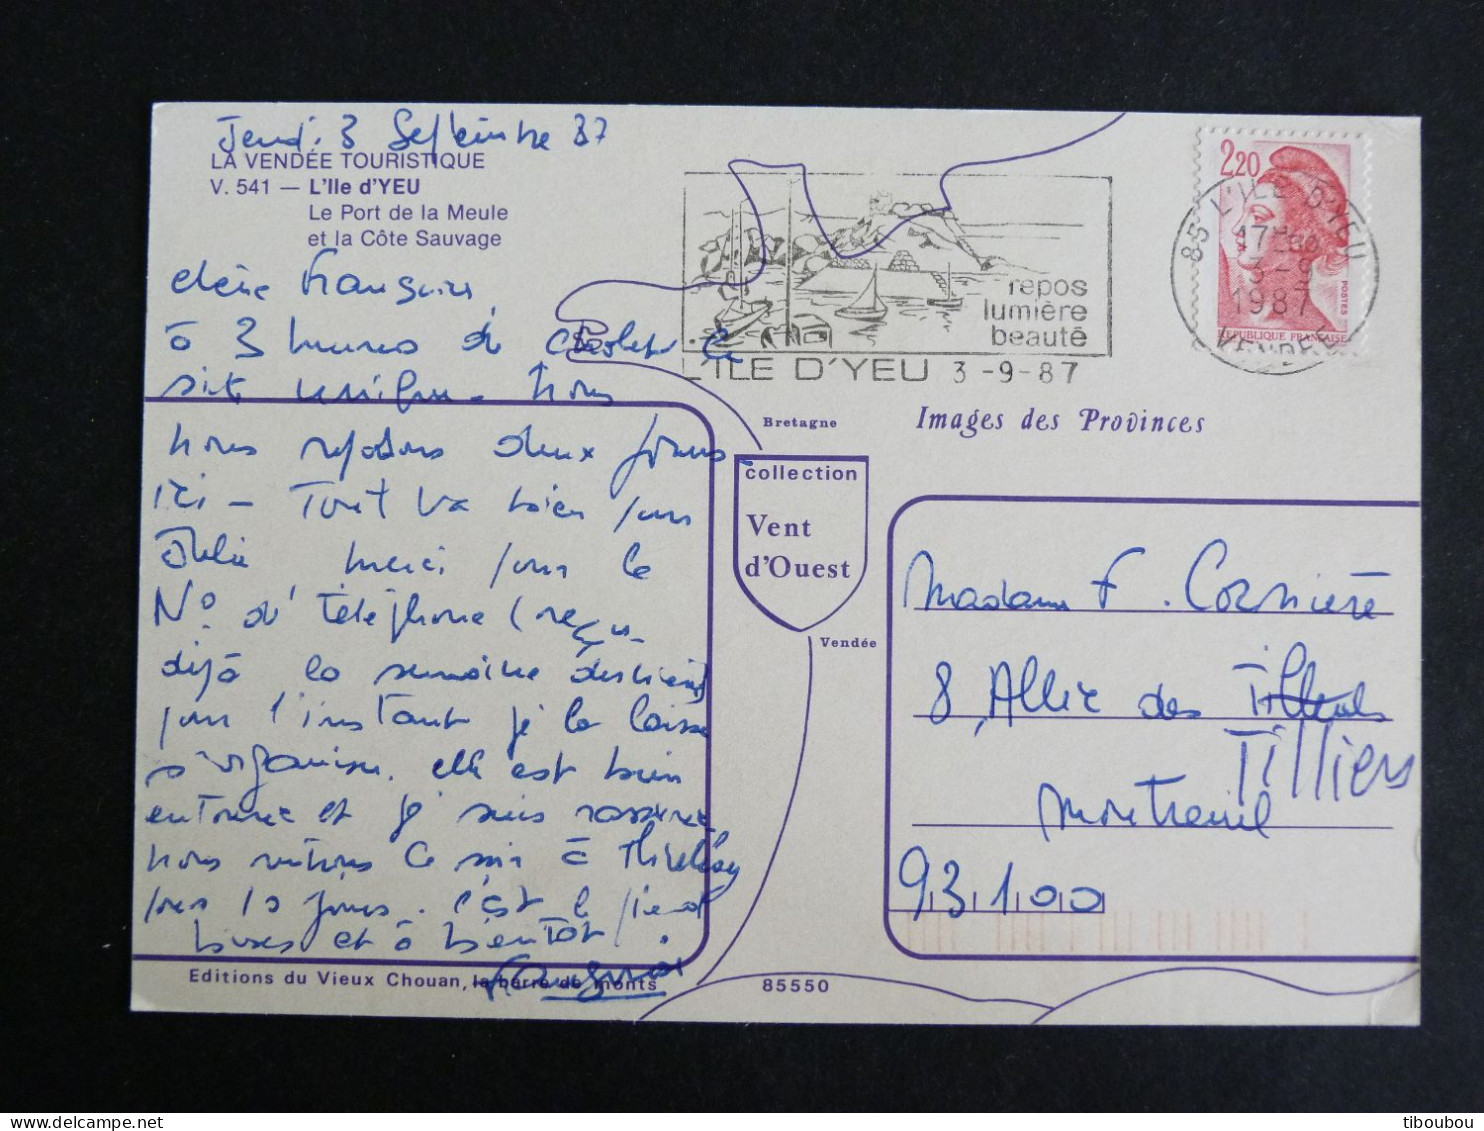 Jeudi 3 Septembre 87
LA VENDÉE TOURISTIQUE
V. 541 — L'Ile d'YEU
Le Port de la Meule
et la Côte Sauvage
chère Françoise,
à 3 heures de Cholet ce
site
nous reposons deux jours
ici — Tout va bien pour
Julie merci pour le
N° de téléphone (reçu
déjà la semaine dernière)
pour l'instant je la laisse
s'organiser. elle est bien
entourée et je suis rassurée
nous rentrons ce soir à
pour 10 jours. c'est le pied
bises et à bientôt
Françoise
Editions du Vieux Chouan, la barre de monts
85550
repos
lumière
beauté
L'ILE D'YEU 3-9-87
2,20
POSTES
REPUBLIQUE FRANÇAISE
85 L'ILE D'YEU
17H
3-9
1987
VENDEE
Bretagne
Images des Provinces
collection
Vent
d'Ouest
Vendée
Madame F. Cornière
8, Allée des Tilleuls
Tilliers
Montreuil
93100
tiboubou